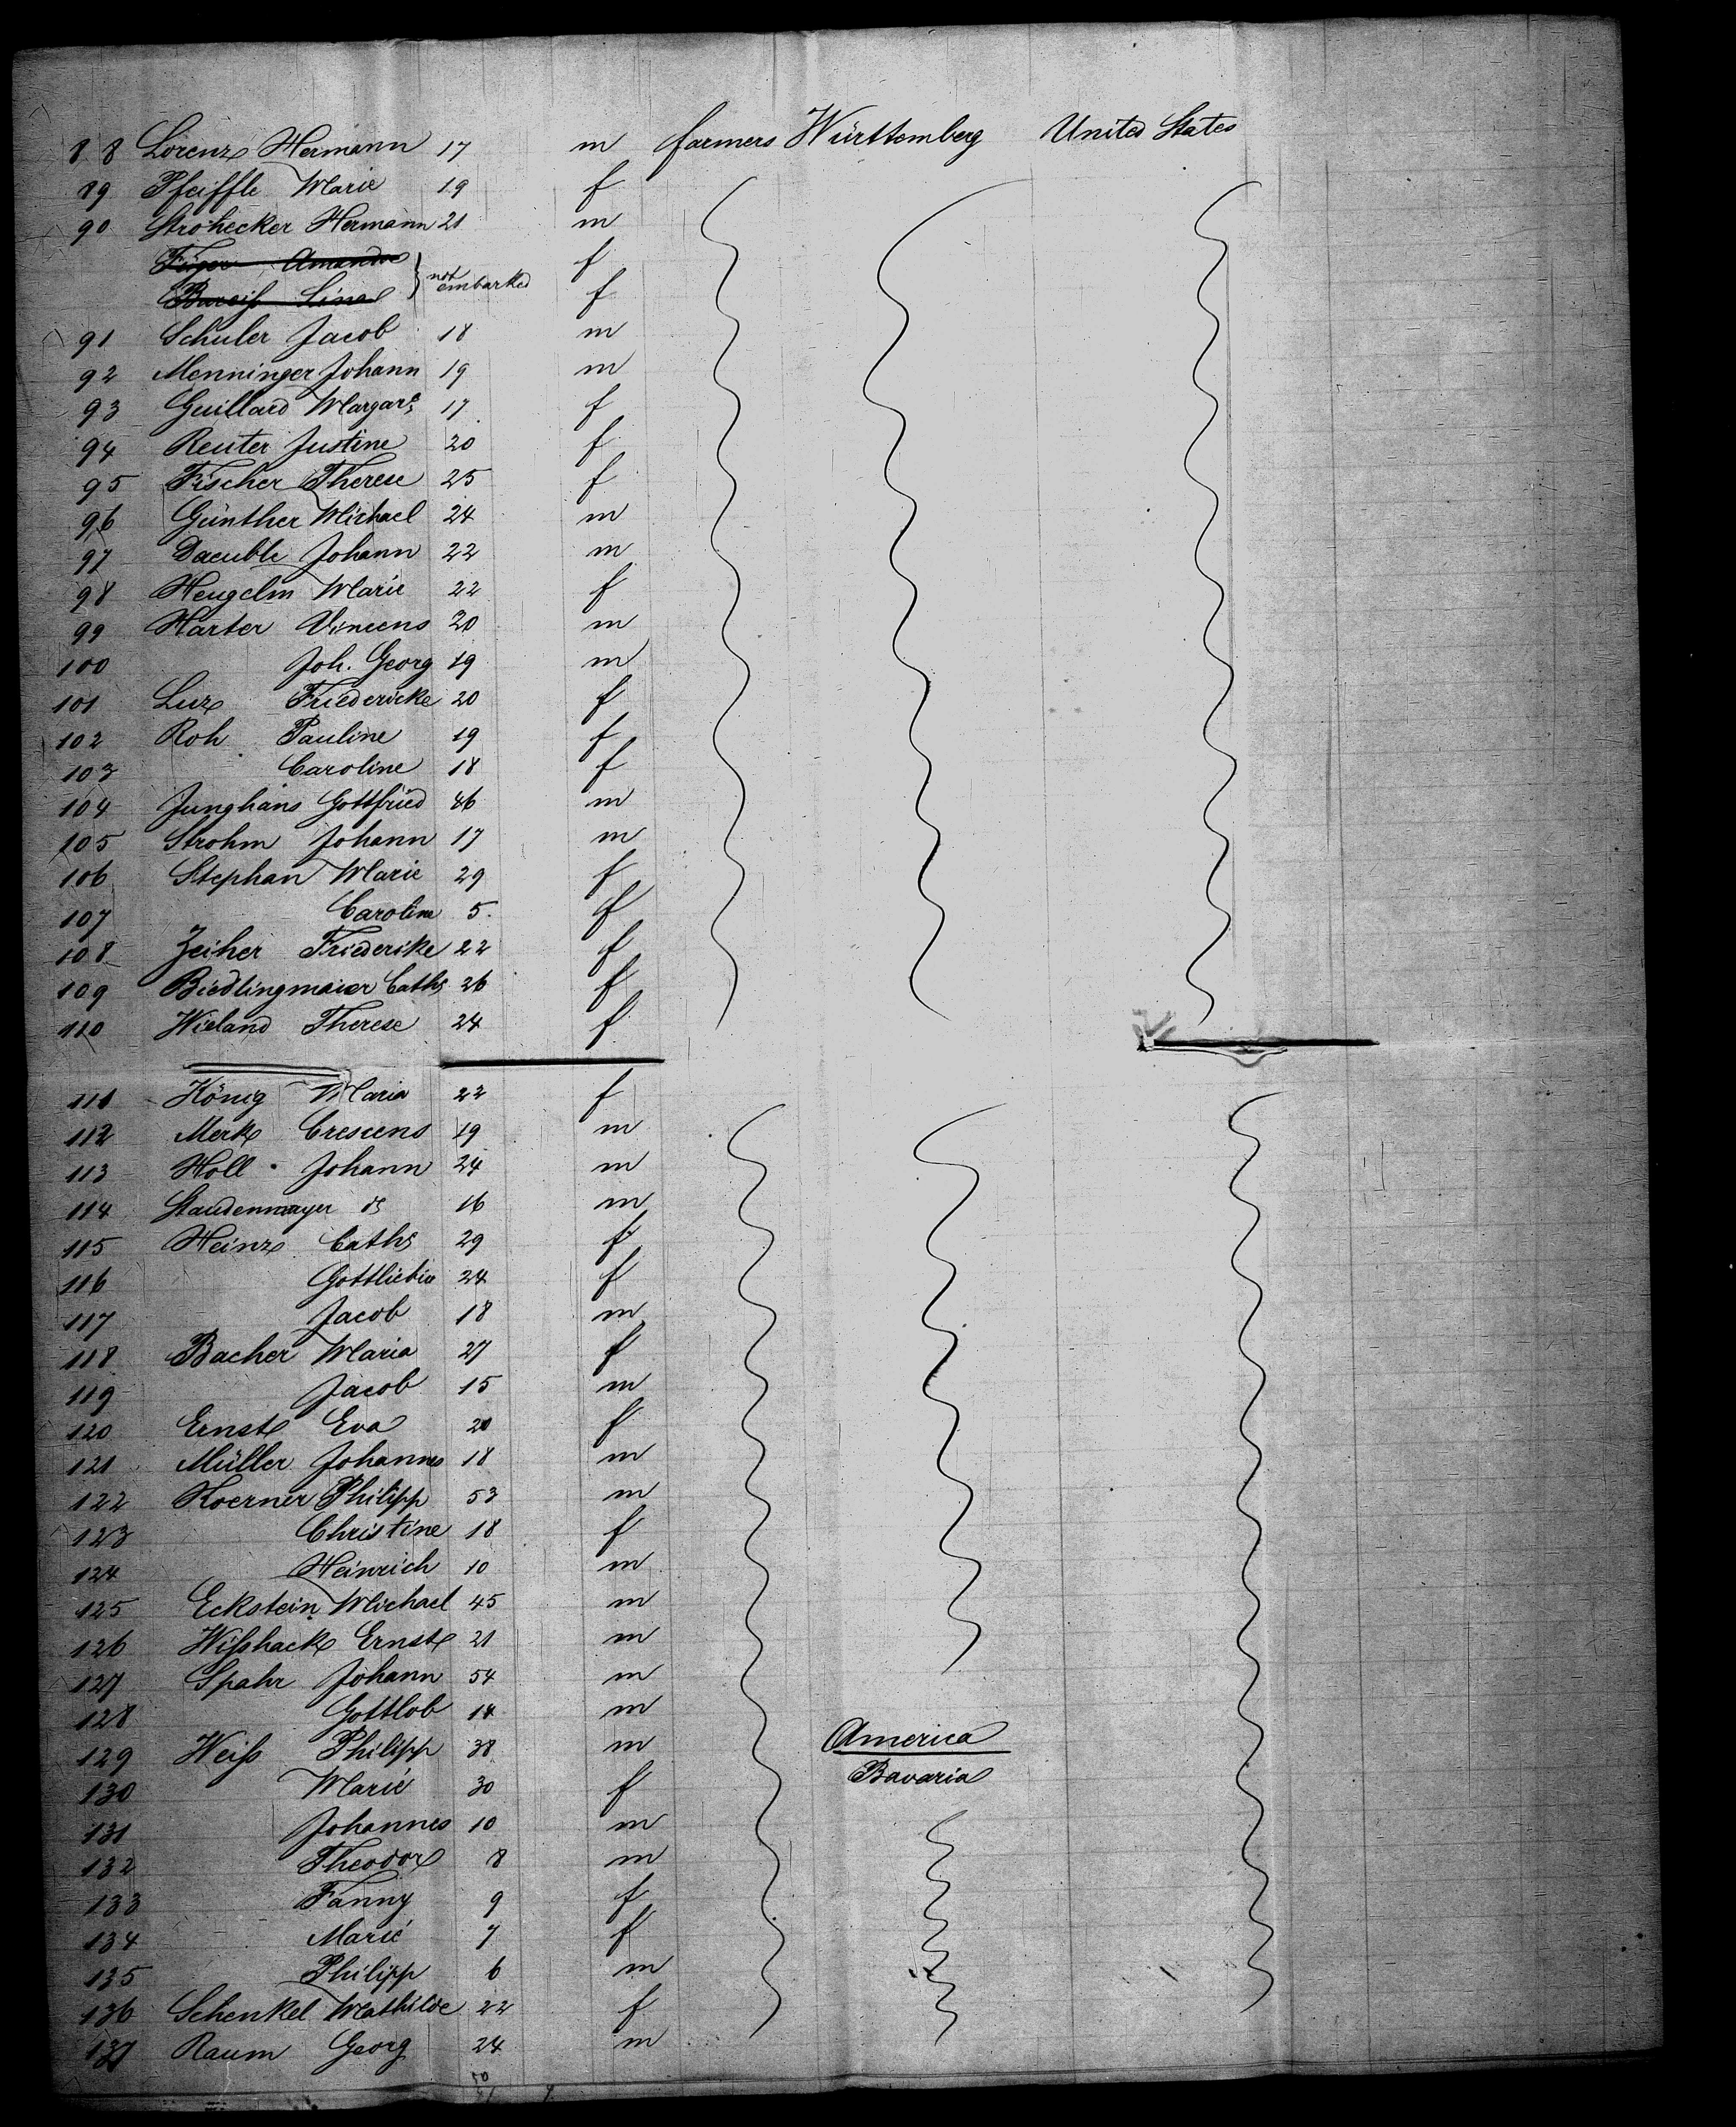 88 Lorenz Hermann 17 m farmers Württemberg United States
89 Pfeiffle Marie 19 f
90 Strohecker Hermann 21 m
Amanda } not embarked f
Lina f
91 Schuler Jacob 18 m
92 Menninger Johann 19 m
93 Guillard Margar. 17 f
94 Reuter Justine 20 f
95 Fischer Therese 25 f
96 Günther Michael 24 m
97 Daeuble Johann 22 m
98 Marie 22 f
99 Harter Vincens 20 m
100 Joh. Georg 19 m
101 Luz Friedericke 20 f
102 Roh Pauline 19 f
103 Caroline 18 f
104 Junghans Gottfried 46 m
105 Strohm Johann 17 m
106 Stephan Marie 29 f
107 Caroline 5 f
108 Zeiher Friederike 22 f
109 Biedlingmaier Cath. 26 f
110 Wieland Therese 24 f
111 König Maria 22 f
112 Merk Crescens 19 m
113 Holl Johann 24 m
114 Staudenmayer 16 m
115 Heinz Cath. 29 f
116 Gottliebin 24 f
117 Jacob 18 m
118 Bacher Maria 27 f
119 Jacob 15 m
120 Ernst Eva 20 f
121 Müller Johannes 18 m
122 Koerner Philipp 53 m
123 Christine 18 f
124 Heinrich 10 m
125 Eckstein Michael 45 m
126 Wißhack Ernst 21 m
127 Spahr Johann 54 m
128 Gottlob 14 m
129 Weiß Philipp 38 m America
130 Marie 30 f Bavaria
131 Johannes 10 m
132 Theodor 8 m
133 Fanny 9 f
134 Marie 7 f
135 Philipp 6 m
136 Schenkel Mathilde 22 f
137 Raum Georg 24 m